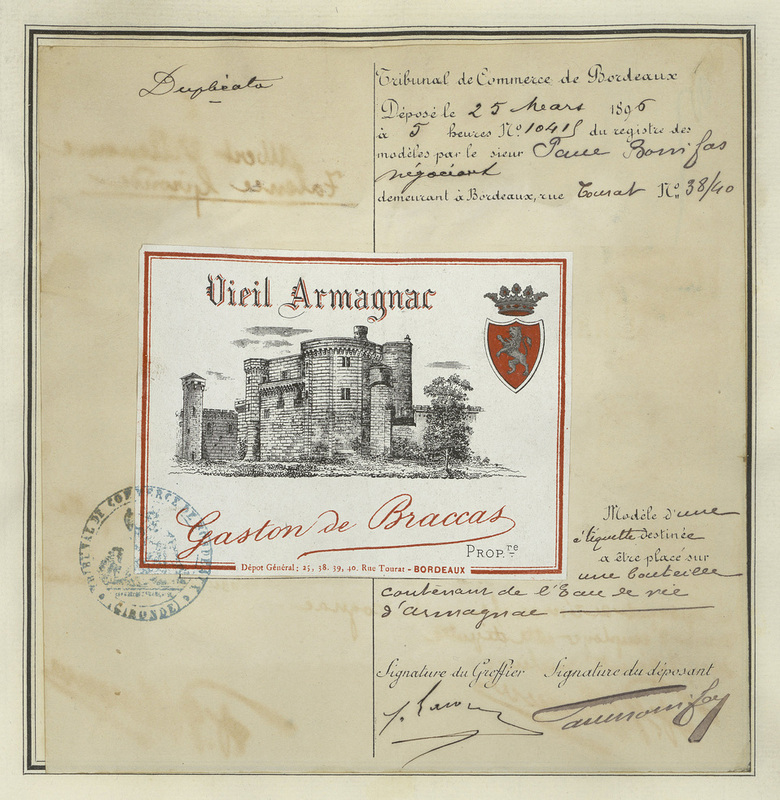 Duplicata
Tribunal de Commerce de Bordeaux
Déposé le 25 Mars 1896
à 5 heures No. 10415 du registre des
modèles par le sieur Paul Bonnifas
négociant
demeurant à Bordeaux, rue Tourat No. 38/40
Vieil Armagnac
Gaston de Braccas
PROP.re
Dépot Général; 25, 38. 39, 40. Rue Tourat - BORDEAUX
TRIBUNAL DE COMMERCE DE BORDEAUX
(GIRONDE)
Modèle d'une
étiquette destinée
a être placé sur
une bouteille
contenant de l'Eau de vie
d'armagnac
Signature du Greffier Signature du déposant